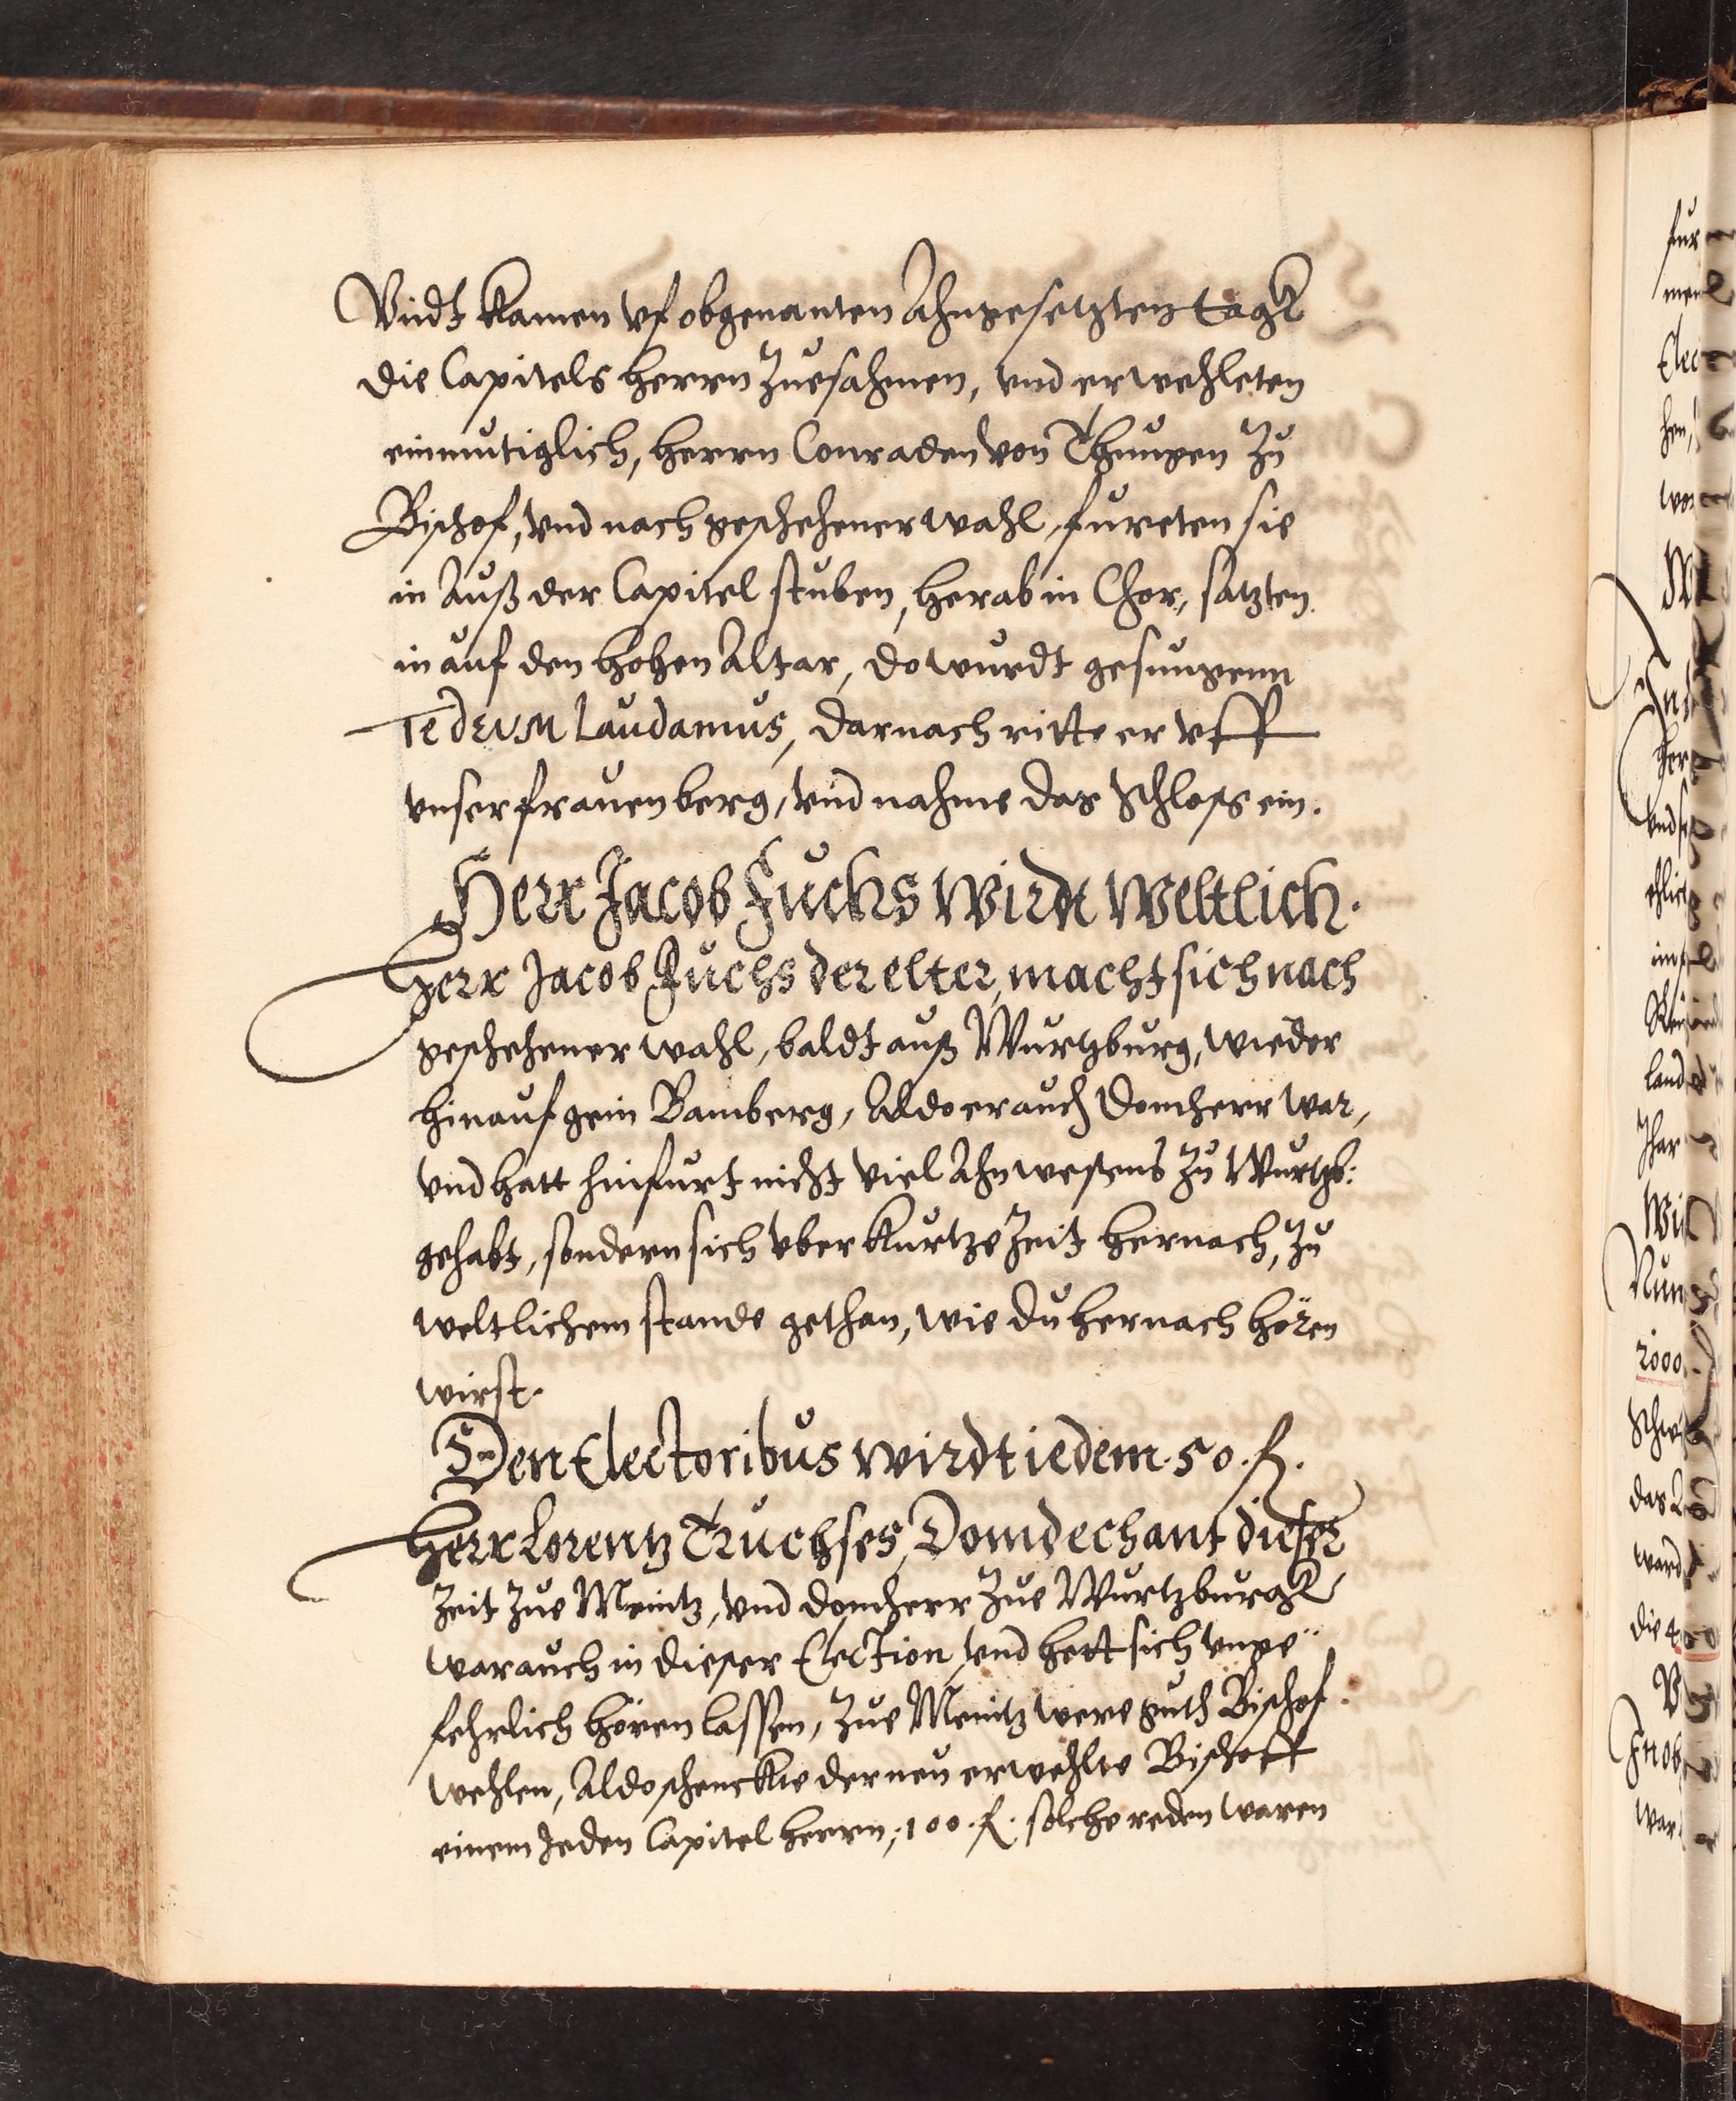 Vndt kamen vf obgenanten Ahngesetzten tagk
die Capitels herrn Zuesahmen, vnd erwehleten
einmutiglich, herrn Conraden von Thungen Zu
Bischof, vnd nach geschehener wahl, fureten sie
in Auß der Capitel stuben, herab in Chor, satzten
in auf den hohen Altar, do wurdt gesungenn
Te DEVM Laudamus, darnach ritte er vff
vnser frauen berg, vnd nahme das Schloss ein.
Herr Jacob Fuchs Wirdt Weltlich.
Herr Jacob Fuchs der elter, macht sich nach
geschehener wahl, baldt auß Wurtzburg, wieder
hinauf gein Bamberg, Aldo er auch Domherr war,
vnd hatt hinfurt nicht viel Ahnwesens Zu Wurtzb:
gehabt, sondern sich vber kurtze Zeit hernach, Zu
weltlichem stande gethan, wie du hernach hören
wirst.
Den Electoribus wirdt iedem. 50. fl.
Herr Lorentz Truchses, Domdechant dieser
Zeit Zue Meintz, vnd domherr Zue Wurtzburgk
war auch in dieser Election, vnd hett sich vnge¨
fehrlich hören lassen, Zue Meintz were guth Bischof
wehlen, Aldo schenckte der neu erwehlte Bischoff
einem Jeden Capitel herrn, 100. fl. solche reden waren
fur
men
Elec
hen,
wor
Vnd
Her
vnd
ehlich
im
land
Jhar
Wi
Nun
2000.
Schw
das
ward
die
war